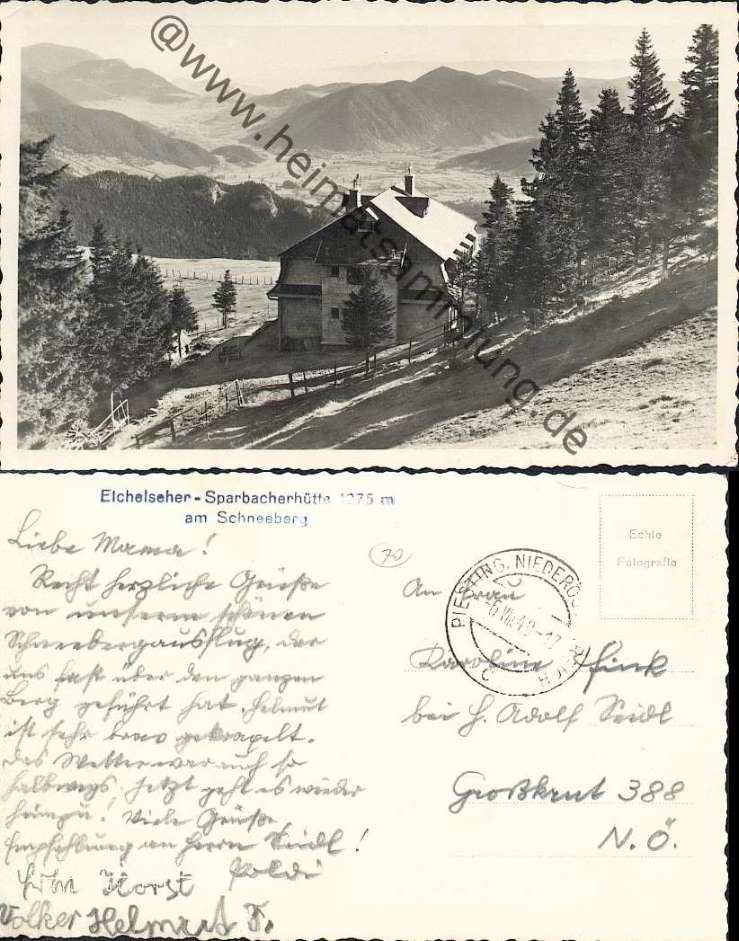 @www.heimatsammlung.de
Eichelseher-Sparbacherhütte 1275 m
am Schneeberg
Liebe Mama!
Recht herzliche Grüße
von unserem schönen
Schneebergausflug, der
uns fast über den ganzen
Berg geführt hat. Helmut
ist sehr brav gekraxelt.
Das Wetter war auch so
halbwegs. Jetzt geht es wieder
heimzu! Viele Grüße,
Empfehlung an Herrn Seidl!
Poldi
Horst
Volker Helmut F.
70
Echte
Fotografie
PIESTING, NIEDERÖSTERREICH
An Frau
Karoline Fink
bei H. Adolf Seidl
Großkrut 388
N.Ö.